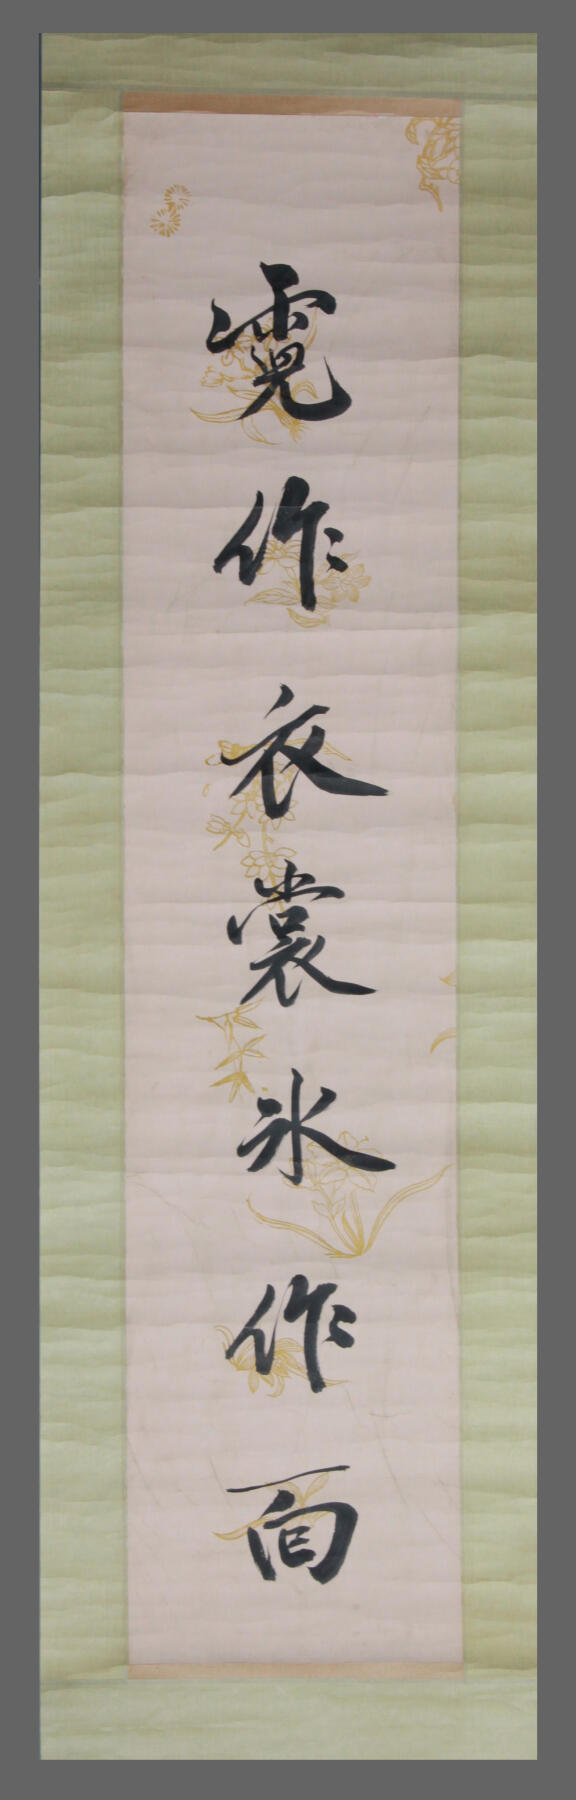 霓作衣裳氷作面